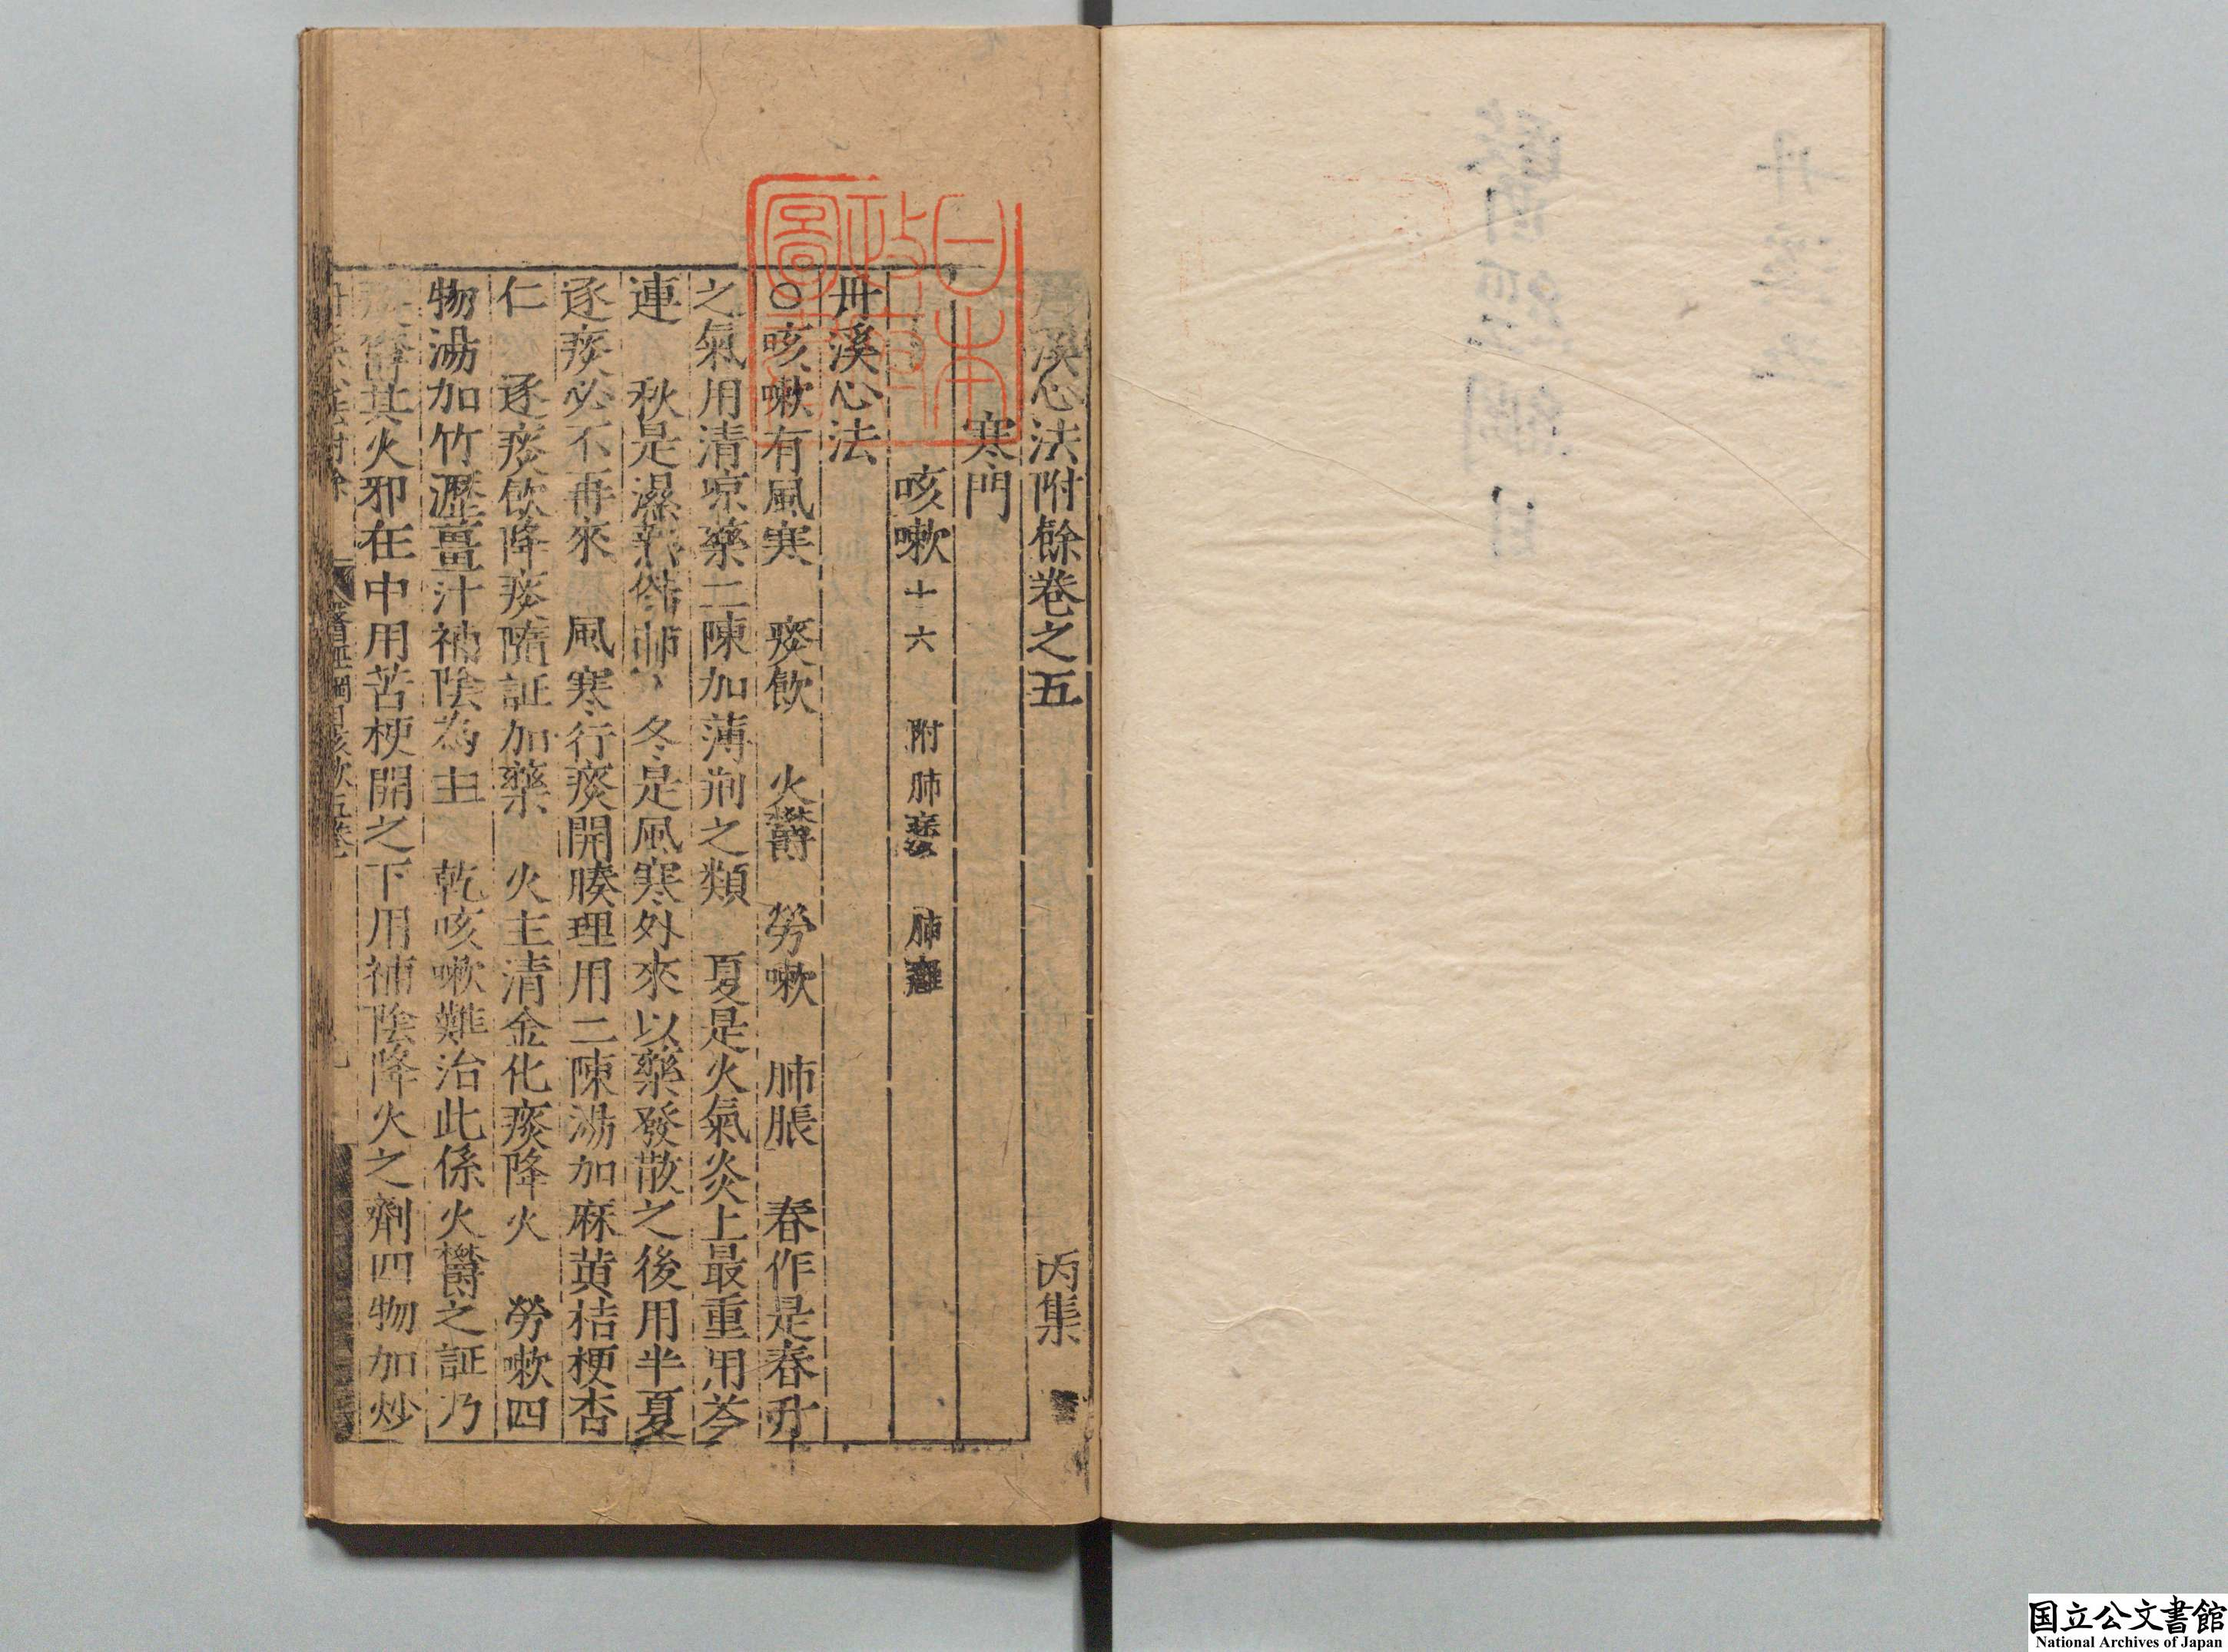 丹溪心法附餘卷之五　丙集
寒門
咳嗽十六　附肺痿　肺癰
丹溪心法
○咳嗽有風寒　痰飲　火欝　勞嗽　肺脹　春作是春升
之氣用清凉藥二陳加薄荊之類　夏是火氣炎上最重用芩
連　秋是濕熱傷肺　冬是風寒外來以藥發散之後用半夏
逐痰必不再來　風寒行痰開腠理用二陳湯加麻黄桔梗杏
仁　逐痰飲降痰隨証加藥　火主清金化痰降火　勞嗽四
物湯加竹瀝薑汁補陰為主　乾咳嗽難治此係火欝之証乃
痰欝其火邪在中用苦梗開之下用補陰降火之劑四物加炒
日本
政
圖
国立公文書館
National Archives of Japan